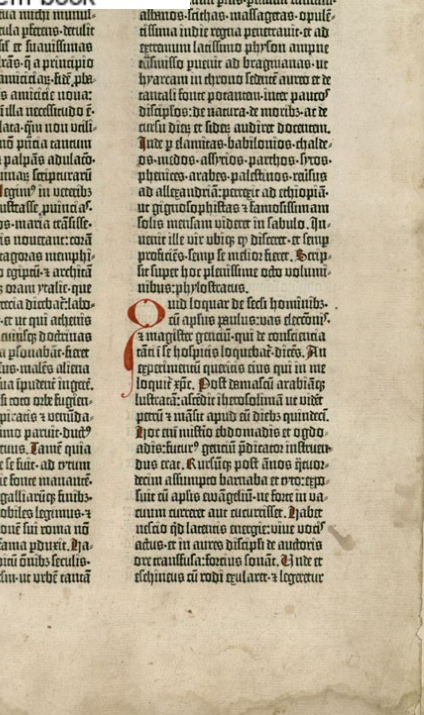 em book
ula pſectens·detulit
ſit et ſuauiſſimas
rãs·q̃ a principio
amiciciaꝝ·fidẽ ꝓba-
s amicicie noua:
ñ illa neceſſitudo ẽ·
lata·q̃m non vtili-
nõ p̃ntia tantum
palpãs adulacõ·
inaꝝ ſcripturarũ
legimꝰ in veterib;
luſtraſſe ꝓuincias·
os·maria trãſiſſe·
is nouerant: corã
tagoras memphi-
egiptũ·⁊ architã
oram ytalie·que
recia dicebat̃: labo-
et ut qui athenis
cuiuſꝗ doctrinas
a pſonabãt·fieret
lus·malẽs aliena
ſua ĩpudent̃ ingerẽ·
ſi toto orbe fugien-
piratis ⁊ venũda-
imo paruit·ductꝰ
ruus. Tamẽ quia
e ſe fuit·ad tytum
ie fonte manantẽ·
galliarũꝗ finib;
obiles legimus·⁊
ionẽ ſui roma nõ
fama ꝑduxit. Ha-
ditũ õnib; ſeculis·
eſſi·ut vrbẽ tantã
albanos·ſcithas·maſſagetas·opulẽ-
tiſſima indie regna penetrauit·et ad
extremum latiſſimo phyſon ampne
trãſmiſſo puenit ad bragmanas·ut
hyarcam in throno ſedentẽ aureo et de
tantali fonte potantem·inter paucos
diſcipulos: de natura·de morib; ac de
curſu dierꝝ et ſideꝝ audiret docentem.
Inde p elamitas·babilonios·chalde-
os·medos·aſſyrios·parthos·ſyros·
phenices·arabes·paleſtinos·reuſus
ad allexandriã: perrexit ad ethiopiã·
ut gignoſophiſtas ⁊ famoſiſſimam
ſolis menſam videret in ſabulo. In-
uenit ille vir vbiꝗ qꝺ diſceret·et ſemp
proficiẽs·ſemp ſe melior fieret. Scrip-
ſit ſuper hoc pleniſſime octo volumi-
nibus: phyloſtratus.
Quid loquar de ſecli hominib;·
cũ apłus paulus: vas elecconiſ·
⁊ magiſter gentiũ·qui de conſciencia
tãti ĩ ſe hoſpitis loquebat̃·dicẽs. An
experimentũ queritis eius qui in me
loquit̃ xp̃c. Poſt damaſcũ arabiãꝗ
luſtratã: aſcẽdit iheroſolimã ut videt̃
petrũ ⁊ mãſit apud eũ dieb; quindeci̅.
Hoc enĩ miſterio ebdomadis et ogdo-
adis: futurꝰ gentiũ p̃dicator inſtruen-
dus erat. Rurſũꝗ poſt ãnos q̃tuor-
decim aſſumpto barnaba et tyto: expo-
ſuit cũ apłis ewãgeliũ·ne forte in va-
cuum curreret aut cucurriſſet. Habet
neſcio qꝺ latentis energie: viue vocis
actus·et in aures diſcipłi de auctoris
ore tranſfuſa: forcius ſonat. Unde et
eſchineus cũ rodi exularet·⁊ legeretur